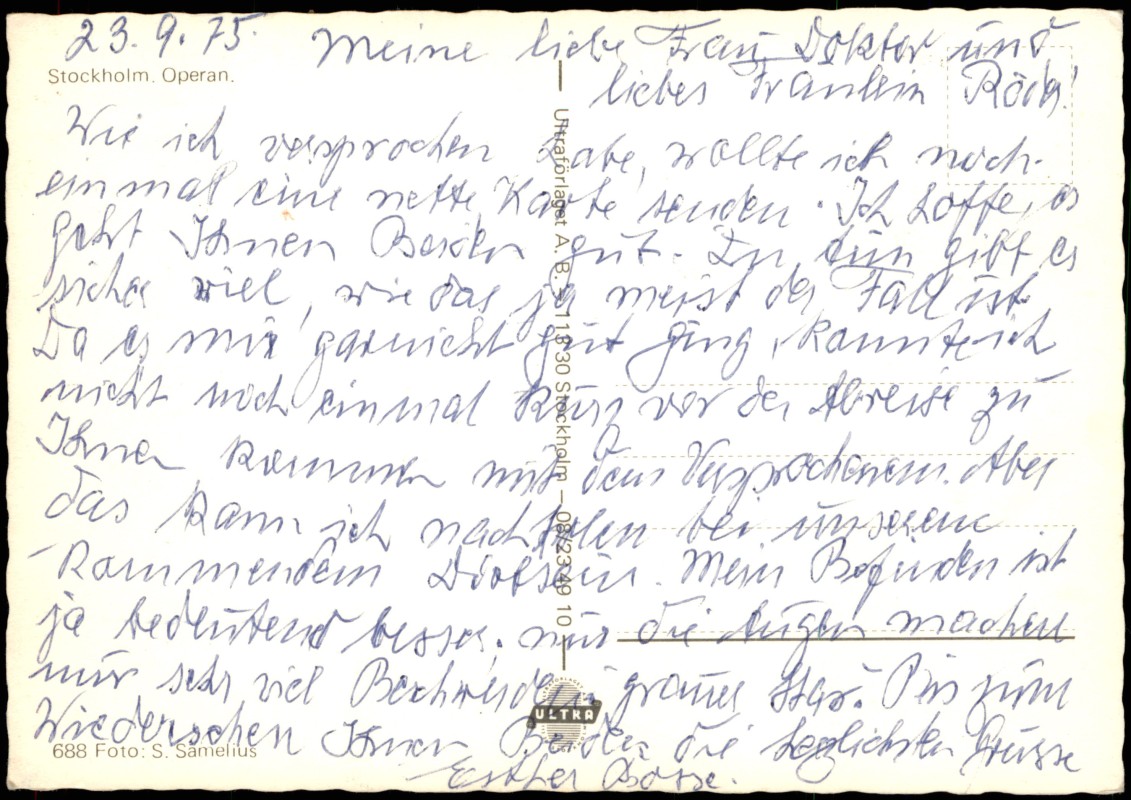 23.9.75. Meine liebe Frau Doktor und
Stockholm. Operan.
liebes Fräulein
Wie ich versprochen habe, wollte ich noch
einmal eine nette Karte senden. Ich hoffe, es
geht Ihnen Beiden gut. Zu tun gibt es
sicher viel, wie das ja meist der Fall ist.
Da es mir garnicht gut ging, konnte ich
nicht noch einmal kurz vor der Abreise zu
Ihnen kommen mit dem Versprochenem. Aber
das kann ich nachholen bei unserem
kommendem Dortsein. Mein Befinden ist
ja bedeutend besser, nur die Augen machen
mir sehr viel Beschwerden, grauer Star. Bis zum
Wiedersehen Ihnen Beiden die herzlichsten Grüsse
Esther Bosse.
688 Foto: S. Samelius
Ultraförlaget A. B. 113 30 Stockholm – 08/23 49 10
ULTRA